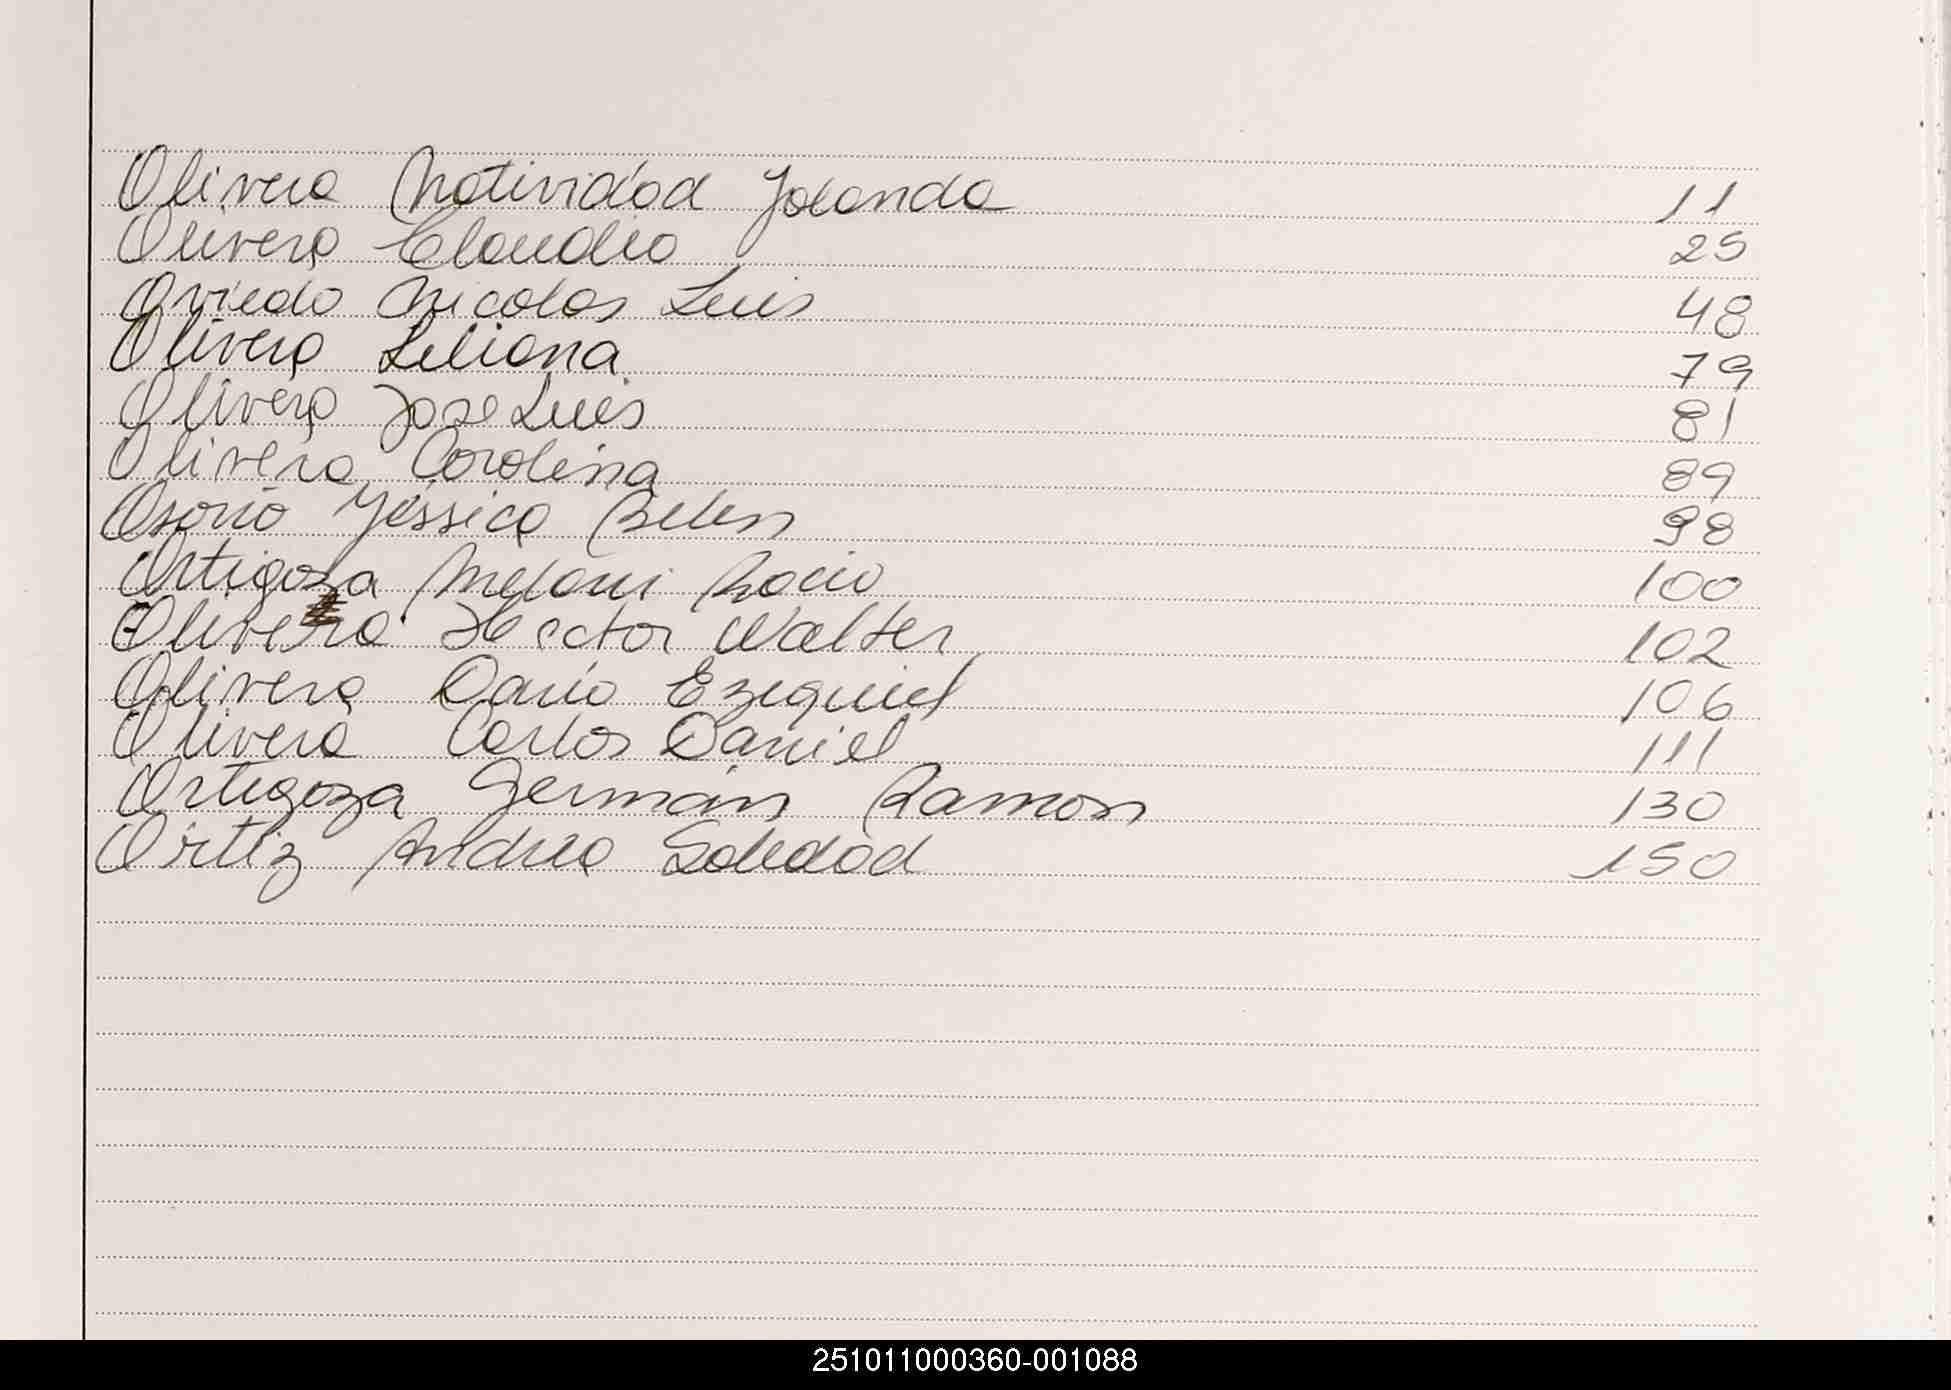 Olivera Natividad Yolanda 11
Olivera Claudio 25
Oviedo Nicolas Luis 48
Olivera Liliana 79
Olivera Jose Luis 81
Olivera Carolina 89
Osorio Yessica Belen 98
Ortigoza Melani Rocio 100
Olivera Hector Walter 102
Olivera Dario Ezequiel 106
Olivera Carlos Daniel 111
Ortigoza Germán Ramon 130
Ortiz Andrea Soledad 150
251011000360-001088